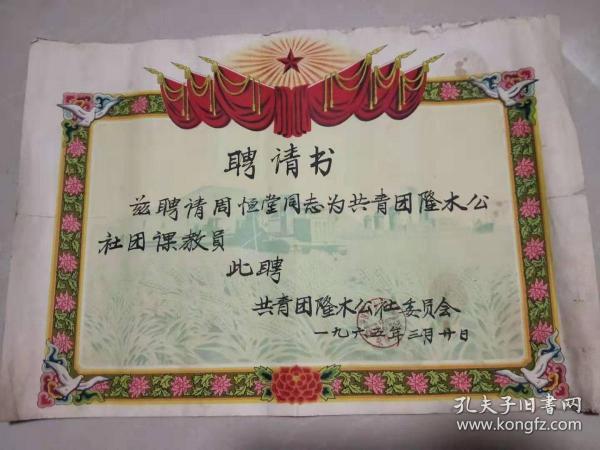 聘请书
兹聘请周恒堂同志为共青团隆木公
社团课教员
此聘
共青团隆木公社委员会
一九六五年三月廿日
孔夫子旧书网
www.kongfz.com